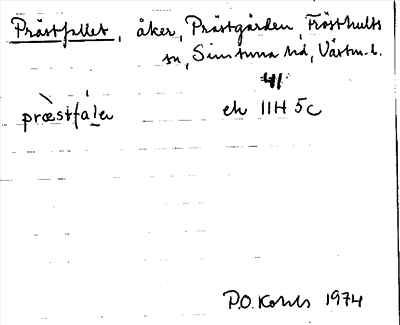 Prästfallet, åker, Prästgården, Frösthults
sn, Simtuna hd, Västm. l.
41
præ̀stfálet
ek 11H 5c
P.O. Kohls 1974